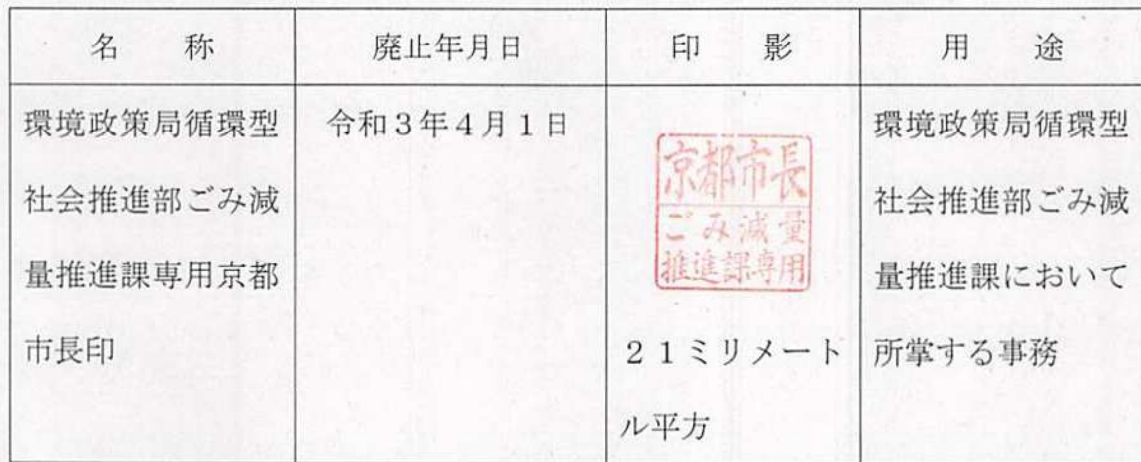 名　称
廃止年月日
印　影
用　途
環境政策局循環型
社会推進部ごみ減
量推進課専用京都
市長印
令和3年4月1日
京都市長
ごみ減量
推進課専用
21ミリメート
ル平方
環境政策局循環型
社会推進部ごみ減
量推進課において
所掌する事務